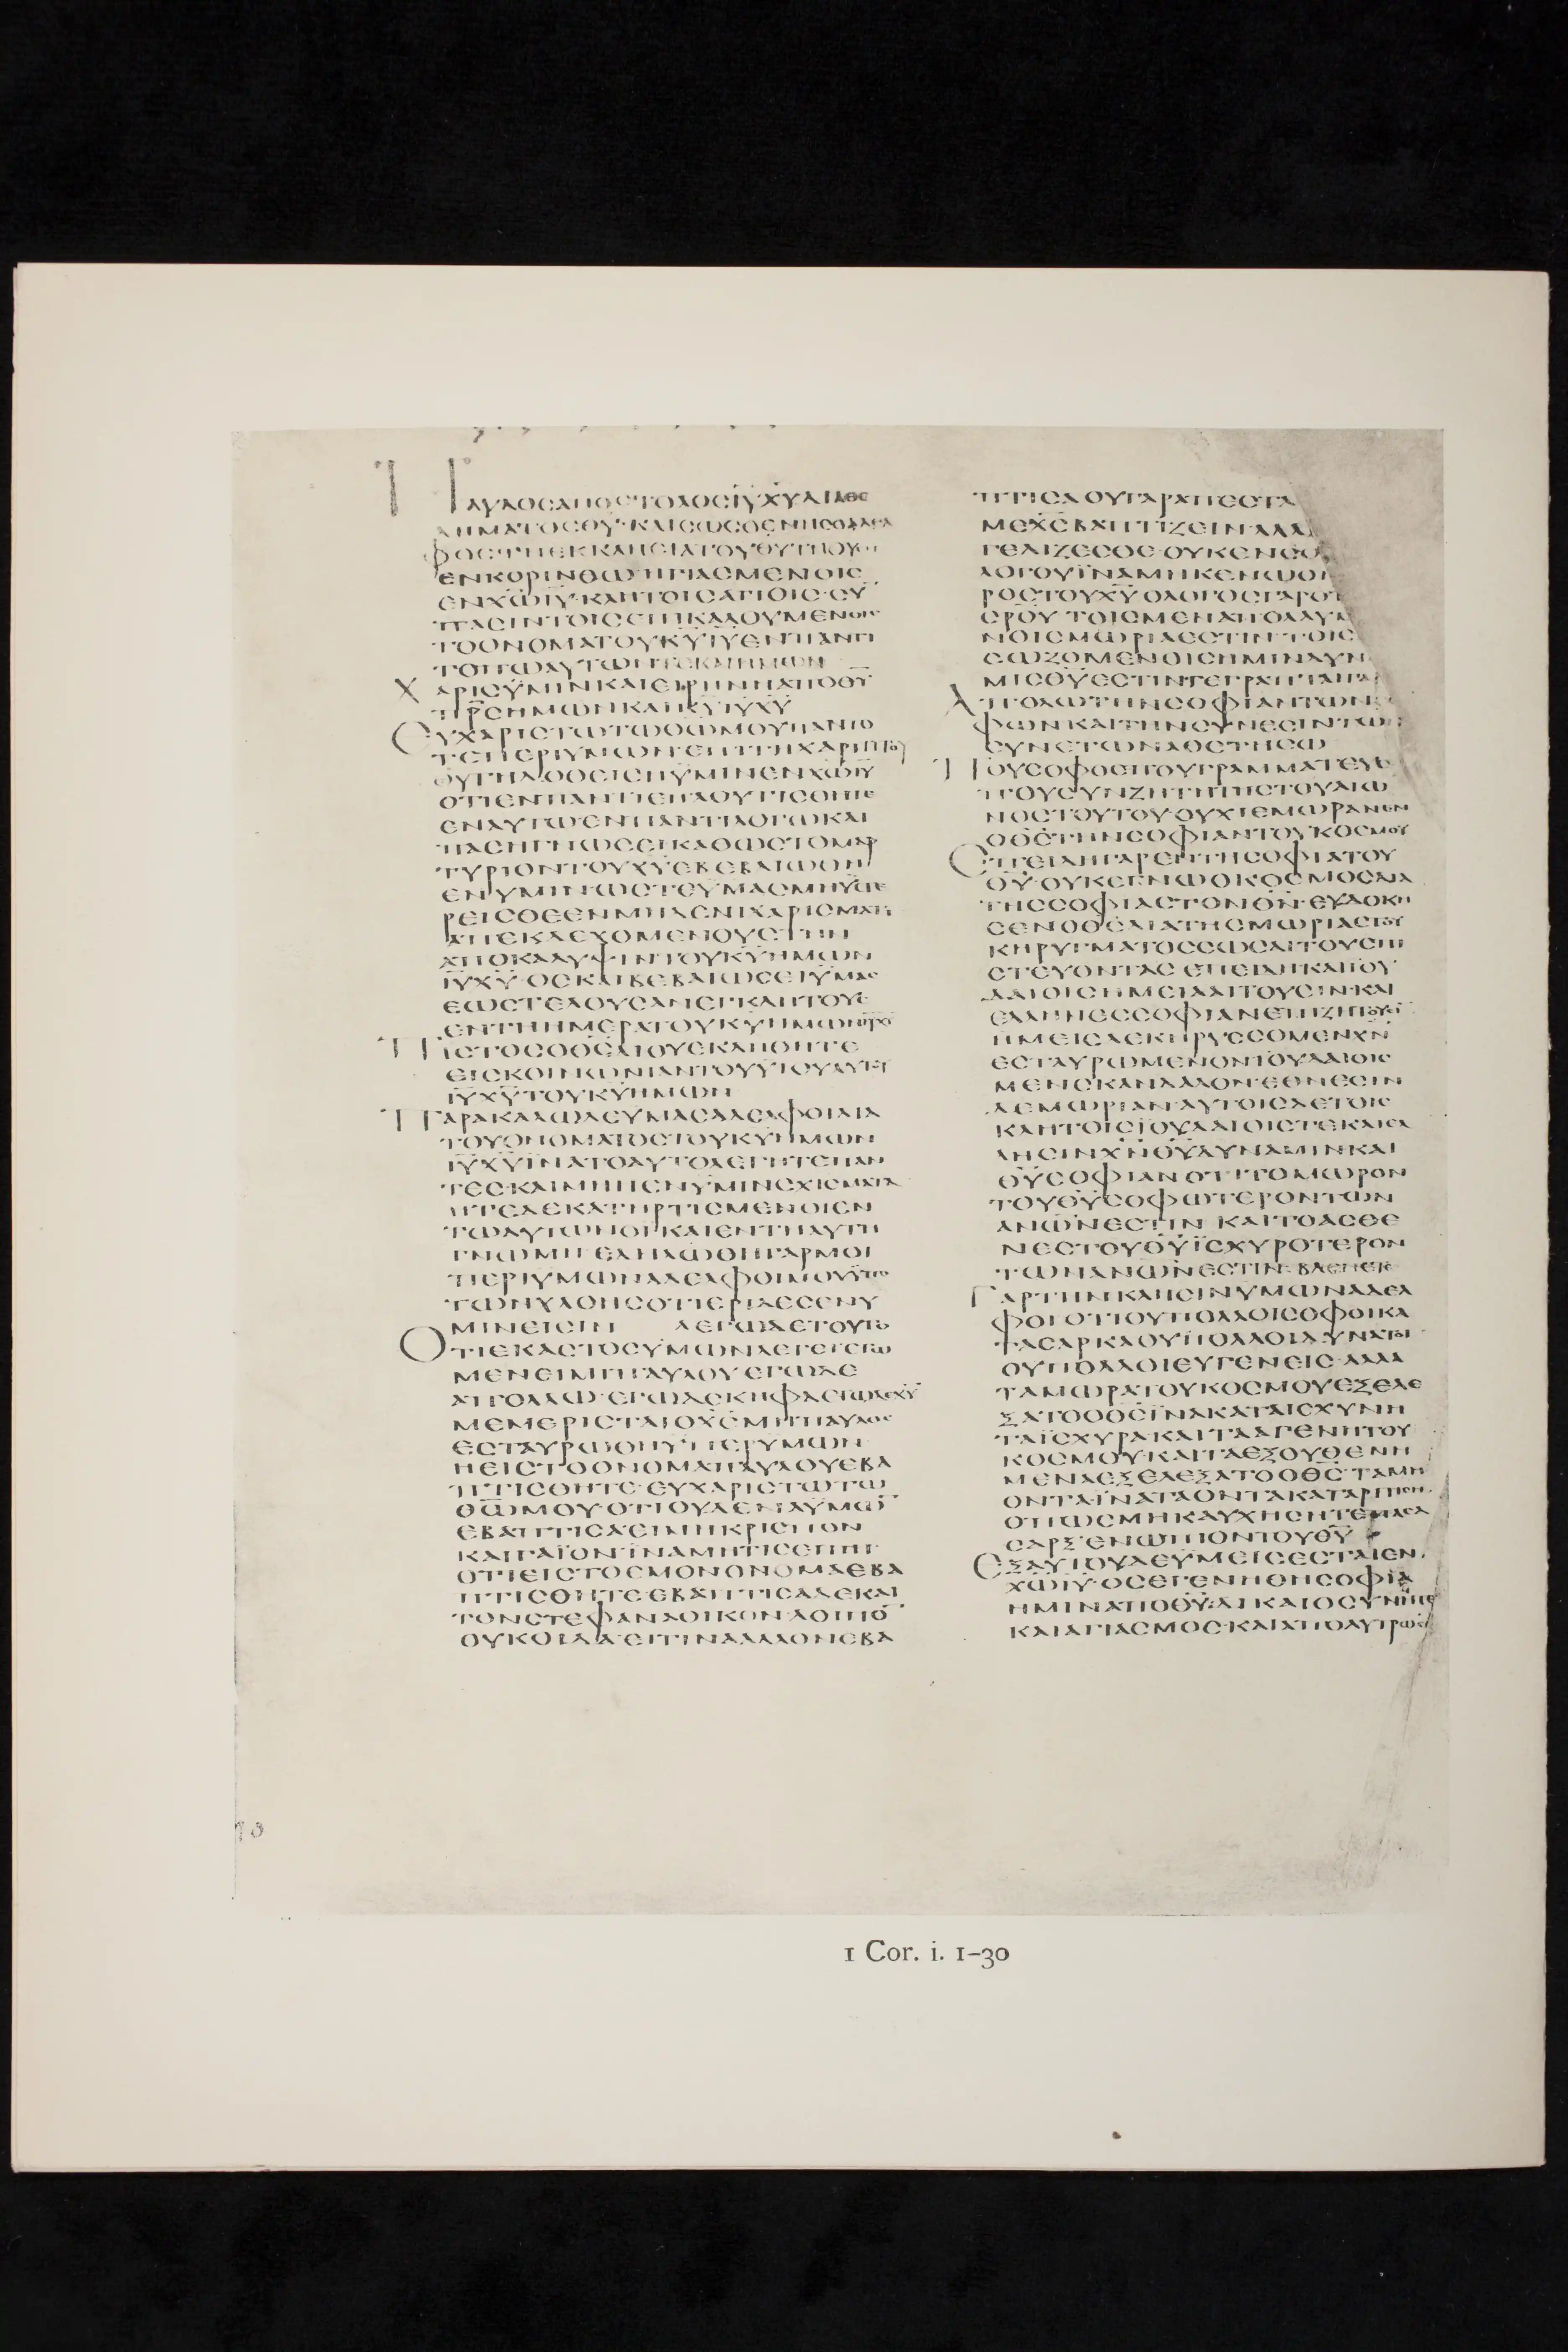 ΠΑΥΛΟϹΑΠΟϹΤΟΛΟϹΙΥΧΥΔΙΑΘΕ
ΛΗΜΑΤΟϹΘΥ·ΚΑΙϹΩϹΘΕΝΗϹΟΑΔΕΛ
ΦΟϹΤΗΕΚΚΛΗϹΙΑΤΟΥΘΥΤΗΟΥϹΗ
ΕΝΚΟΡΙΝΘΩΗΓΙΑϹΜΕΝΟΙϹ
ΕΝΧΩΙΥ·ΚΛΗΤΟΙϹΑΓΙΟΙϹ·ϹΥ
ΠΑϹΙΝΤΟΙϹΕΠΙΚΑΛΟΥΜΕΝΟΙϹ
ΤΟΟΝΟΜΑΤΟΥΚΥΙΥΕΝΠΑΝΤΙ
ΤΟΠΩΑΥΤΩΝΤΕΚΑΙΗΜΩΝ
ΧΑΡΙϹΫΜΙΝΚΑΙΕΙΡΗΝΗΑΠΟΘΥ
ΠΡϹΗΜΩΝΚΑΙΚΥΙΥΧΥ
ΕΥΧΑΡΙϹΤΩΤΩΘΩΜΟΥΠΑΝΤΟ
ΤΕΠΕΡΙΥΜΩΝ·ΕΠΙΤΗΧΑΡΙΤΙΤΟΥ
ΘΥΤΗΔΟΘΕΙϹΗΫΜΙΝΕΝΧΩΙΥ
ΟΤΙΕΝΠΑΝΤΙΕΠΛΟΥΤΙϹΘΗΤΕ
ΕΝΑΥΤΩ·ΕΝΠΑΝΤΙΛΟΓΩΚΑΙ
ΠΑϹΗΓΝΩϹΕΙΚΑΘΩϹΤΟΜΑΡ
ΤΥΡΙΟΝΤΟΥΧΥΕΒΕΒΑΙΩΘΗ
ΕΝΥΜΙΝΩϹΤΕΫΜΑϹΜΗΫϹΤΕ
ΡΕΙϹΘΕΕΝΜΗΔΕΝΙΧΑΡΙϹΜΑΤΙ
ΑΠΕΚΔΕΧΟΜΕΝΟΥϹΤΗΝ
ΑΠΟΚΑΛΥΨΙΝΤΟΥΚΥΗΜΩΝ
ΙΥΧΥ·ΟϹΚΑΙΒΕΒΑΙΩϹΕΙΫΜΑϹ
ΕΩϹΤΕΛΟΥϹΑΝΕΓΚΛΗΤΟΥϹ
ΕΝΤΗΗΜΕΡΑΤΟΥΚΥΗΜΩΝΙΥΧΥ
ΠΙϹΤΟϹΟΘϹΔΙΟΥΕΚΛΗΘΗΤΕ
ΕΙϹΚΟΙΝΩΝΙΑΝΤΟΥΥΙΟΥΑΥΤΟΥ
ΙΥΧΥΤΟΥΚΥΗΜΩΝ
ΠΑΡΑΚΑΛΩΔΕΥΜΑϹΑΔΕΛΦΟΙΔΙΑ
ΤΟΥΟΝΟΜΑΤΟϹΤΟΥΚΥΗΜΩΝ
ΙΥΧΥΪΝΑΤΟΑΥΤΟΛΕΓΗΤΕΠΑΝ
ΤΕϹ·ΚΑΙΜΗΗΕΝΫΜΙΝϹΧΙϹΜΑΤΑ
ΗΤΕΔΕΚΑΤΗΡΤΙϹΜΕΝΟΙΕΝ
ΤΩΑΥΤΩΝΟΙ·ΚΑΙΕΝΤΗΑΥΤΗ
ΓΝΩΜΗ·ΕΔΗΛΩΘΗΓΑΡΜΟΙ
ΠΕΡΙΥΜΩΝΑΔΕΛΦΟΙΜΟΥΫΠΟ
ΤΩΝΧΛΟΗϹΟΤΙΕΡΙΔΕϹΕΝΥ
ΜΙΝΕΙϹΙΝ ΛΕΓΩΔΕΤΟΥΤΟ
ΟΤΙΕΚΑϹΤΟϹΥΜΩΝΛΕΓΕΙΕΓΩ
ΜΕΝΕΙΜΙΠΑΥΛΟΥΕΓΩΔΕ
ΑΠΟΛΛΩ·ΕΓΩΔΕΚΗΦΑΕΓΩΔΕΧΥ
ΜΕΜΕΡΙϹΤΑΙΟΧϹΜΗΠΑΥΛΟϹ
ΕϹΤΑΥΡΩΘΗΥΠΕΡΥΜΩΝ
ΗΕΙϹΤΟΟΝΟΜΑΠΑΥΛΟΥΕΒΑ
ΠΤΙϹΘΗΤΕ·ΕΥΧΑΡΙϹΤΩΤΩ
ΘΩΜΟΥ·ΟΤΙΟΥΔΕΝΑΫΜΩ
ΕΒΑΠΤΙϹΑΕΙΜΗΚΡΙϹΠΟΝ
ΚΑΙΓΑΪΟΝ·ΪΝΑΜΗΤΙϹΕΙΠΗ
ΟΤΙΕΙϹΤΟΕΜΟΝΟΝΟΜΑΕΒΑ
ΠΤΙϹΘΗΤΕ·ΕΒΑΠΤΙϹΑΔΕΚΑΙ
ΤΟΝϹΤΕΦΑΝΑΟΙΚΟΝ·ΛΟΙΠΟ
ΟΥΚΟΙΔΑ·ΕΙΤΙΝΑΑΛΛΟΝΕΒΑ
ΠΤΙϹΑΟΥΓΑΡΑΠΕϹΤΑ
ΜΕΧϹΒΑΠΤΙΖΕΙΝ·ΑΛΛΑ
ΓΕΛΙΖΕϹΘΕ·ΟΥΚΕΝϹΟ
ΛΟΓΟΥΪΝΑΜΗΚΕΝΩΘΗ
ΡΟϹΤΟΥΧΥΟΛΟΓΟϹΓΑΡΟΤ
ϹΡΟΥΤΟΙϹΜΕΝΑΠΟΛΛΥΜ
ΝΟΙϹΜΩΡΙΑΕϹΤΙΝ·ΤΟΙϹ
ϹΩΖΟΜΕΝΟΙϹΗΜΙΝΔΥΝ
ΜΙϹΘΥΕϹΤΙΝΓΕΓΡΑΠΤΑΙΓΑΡ
ΑΠΟΛΩΤΗΝϹΟΦΙΑΝΤΩΝ
ΦΩΝΚΑΙΤΗΝϹΥΝΕϹΙΝΤΩ
ϹΥΝΕΤΩΝΑΘΕΤΗϹΩ
ΠΟΥϹΟΦΟϹΠΟΥΓΡΑΜΜΑΤΕΥϹ
ΠΟΥϹΥΝΖΗΤΗΤΗϹΤΟΥΑΙΩ
ΝΟϹΤΟΥΤΟΥΟΥΧΙΕΜΩΡΑΝΕΝ
ΟΘϹΤΗΝϹΟΦΙΑΝΤΟΥΚΟϹΜΟΥ
ΕΠΕΙΔΗΓΑΡΕΝΤΗϹΟΦΙΑΤΟΥ
ΘΥ·ΟΥΚΕΓΝΩΟΚΟϹΜΟϹΔΙΑ
ΤΗϹϹΟΦΙΑϹΤΟΝΘΝ·ΕΥΔΟΚΗ
ϹΕΝΟΘϹΔΙΑΤΗϹΜΩΡΙΑϹΤΟΥ
ΚΗΡΥΓΜΑΤΟϹϹΩϹΑΙΤΟΥϹΠΙ
ϹΤΕΥΟΝΤΑϹ·ΕΠΕΙΔΗΚΑΙΙΟΥ
ΔΑΙΟΙϹΗΜΕΙΑΑΙΤΟΥϹΙΝ·ΚΑΙ
ΕΛΛΗΝΕϹϹΟΦΙΑΝΕΠΙΖΗΤΟΥϹΙ
ΗΜΕΙϹΔΕΚΗΡΥϹϹΟΜΕΝΧΝ
ΕϹΤΑΥΡΩΜΕΝΟΝΪΟΥΔΑΙΟΙϹ
ΜΕΝϹΚΑΝΔΑΛΟΝ·ΕΘΝΕϹΙΝ
ΔΕΜΩΡΙΑΝΑΥΤΟΙϹΔΕΤΟΙϹ
ΚΛΗΤΟΙϹΙΟΥΔΑΙΟΙϹΤΕΚΑΙΕΛ
ΛΗϹΙΝΧΝΘΥΔΥΝΑΜΙΝΚΑΙ
ΘΥϹΟΦΙΑΝΟΤΙΤΟΜΩΡΟΝ
ΤΟΥΘΥϹΟΦΩΤΕΡΟΝΤΩΝ
ΑΝΩΝΕϹΤΙΝΚΑΙΤΟΑϹΘΕ
ΝΕϹΤΟΥΘΥΪϹΧΥΡΟΤΕΡΟΝ
ΤΩΝΑΝΩΝΕϹΤΙΝ·ΒΛΕΠΕΤΕ
ΓΑΡΤΗΝΚΛΗϹΙΝΥΜΩΝΑΔΕΛ
ΦΟΙΟΤΙΟΥΠΟΛΛΟΙϹΟΦΟΙΚΑ
ΤΑϹΑΡΚΑΟΥΠΟΛΛΟΙΔΥΝΑΤΟΙ
ΟΥΠΟΛΛΟΙΕΥΓΕΝΕΙϹ·ΑΛΛΑ
ΤΑΜΩΡΑΤΟΥΚΟϹΜΟΥΕΞΕΛΕ
ΞΑΤΟΟΘϹΪΝΑΚΑΤΑΙϹΧΥΝΗ
ΤΑΪϹΧΥΡΑΚΑΙΤΑΑΓΕΝΗΤΟΥ
ΚΟϹΜΟΥΚΑΙΤΑΕΞΟΥΘΕΝΗ
ΜΕΝΑΕΞΕΛΕΞΑΤΟΟΘϹΤΑΜΗ
ΟΝΤΑΪΝΑΤΑΟΝΤΑΚΑΤΑΡΓΗϹΗ
ΟΠΩϹΜΗΚΑΥΧΗϹΗΤΕΠΑϹΑ
ϹΑΡΞΕΝΩΠΙΟΝΤΟΥΘΥ
ΕΞΑΥΤΟΥΔΕΥΜΕΙϹΕϹΤΑΙΕΝ
ΧΩΙΥ·ΟϹΕΓΕΝΗΘΗϹΟΦΙΑ
ΗΜΙΝΑΠΟΘΥ·ΔΙΚΑΙΟϹΥΝΗΤΕ
ΚΑΙΑΓΙΑϹΜΟϹ·ΚΑΙΑΠΟΛΥΤΡΩϹΙϹ
1 Cor. i. 1–30